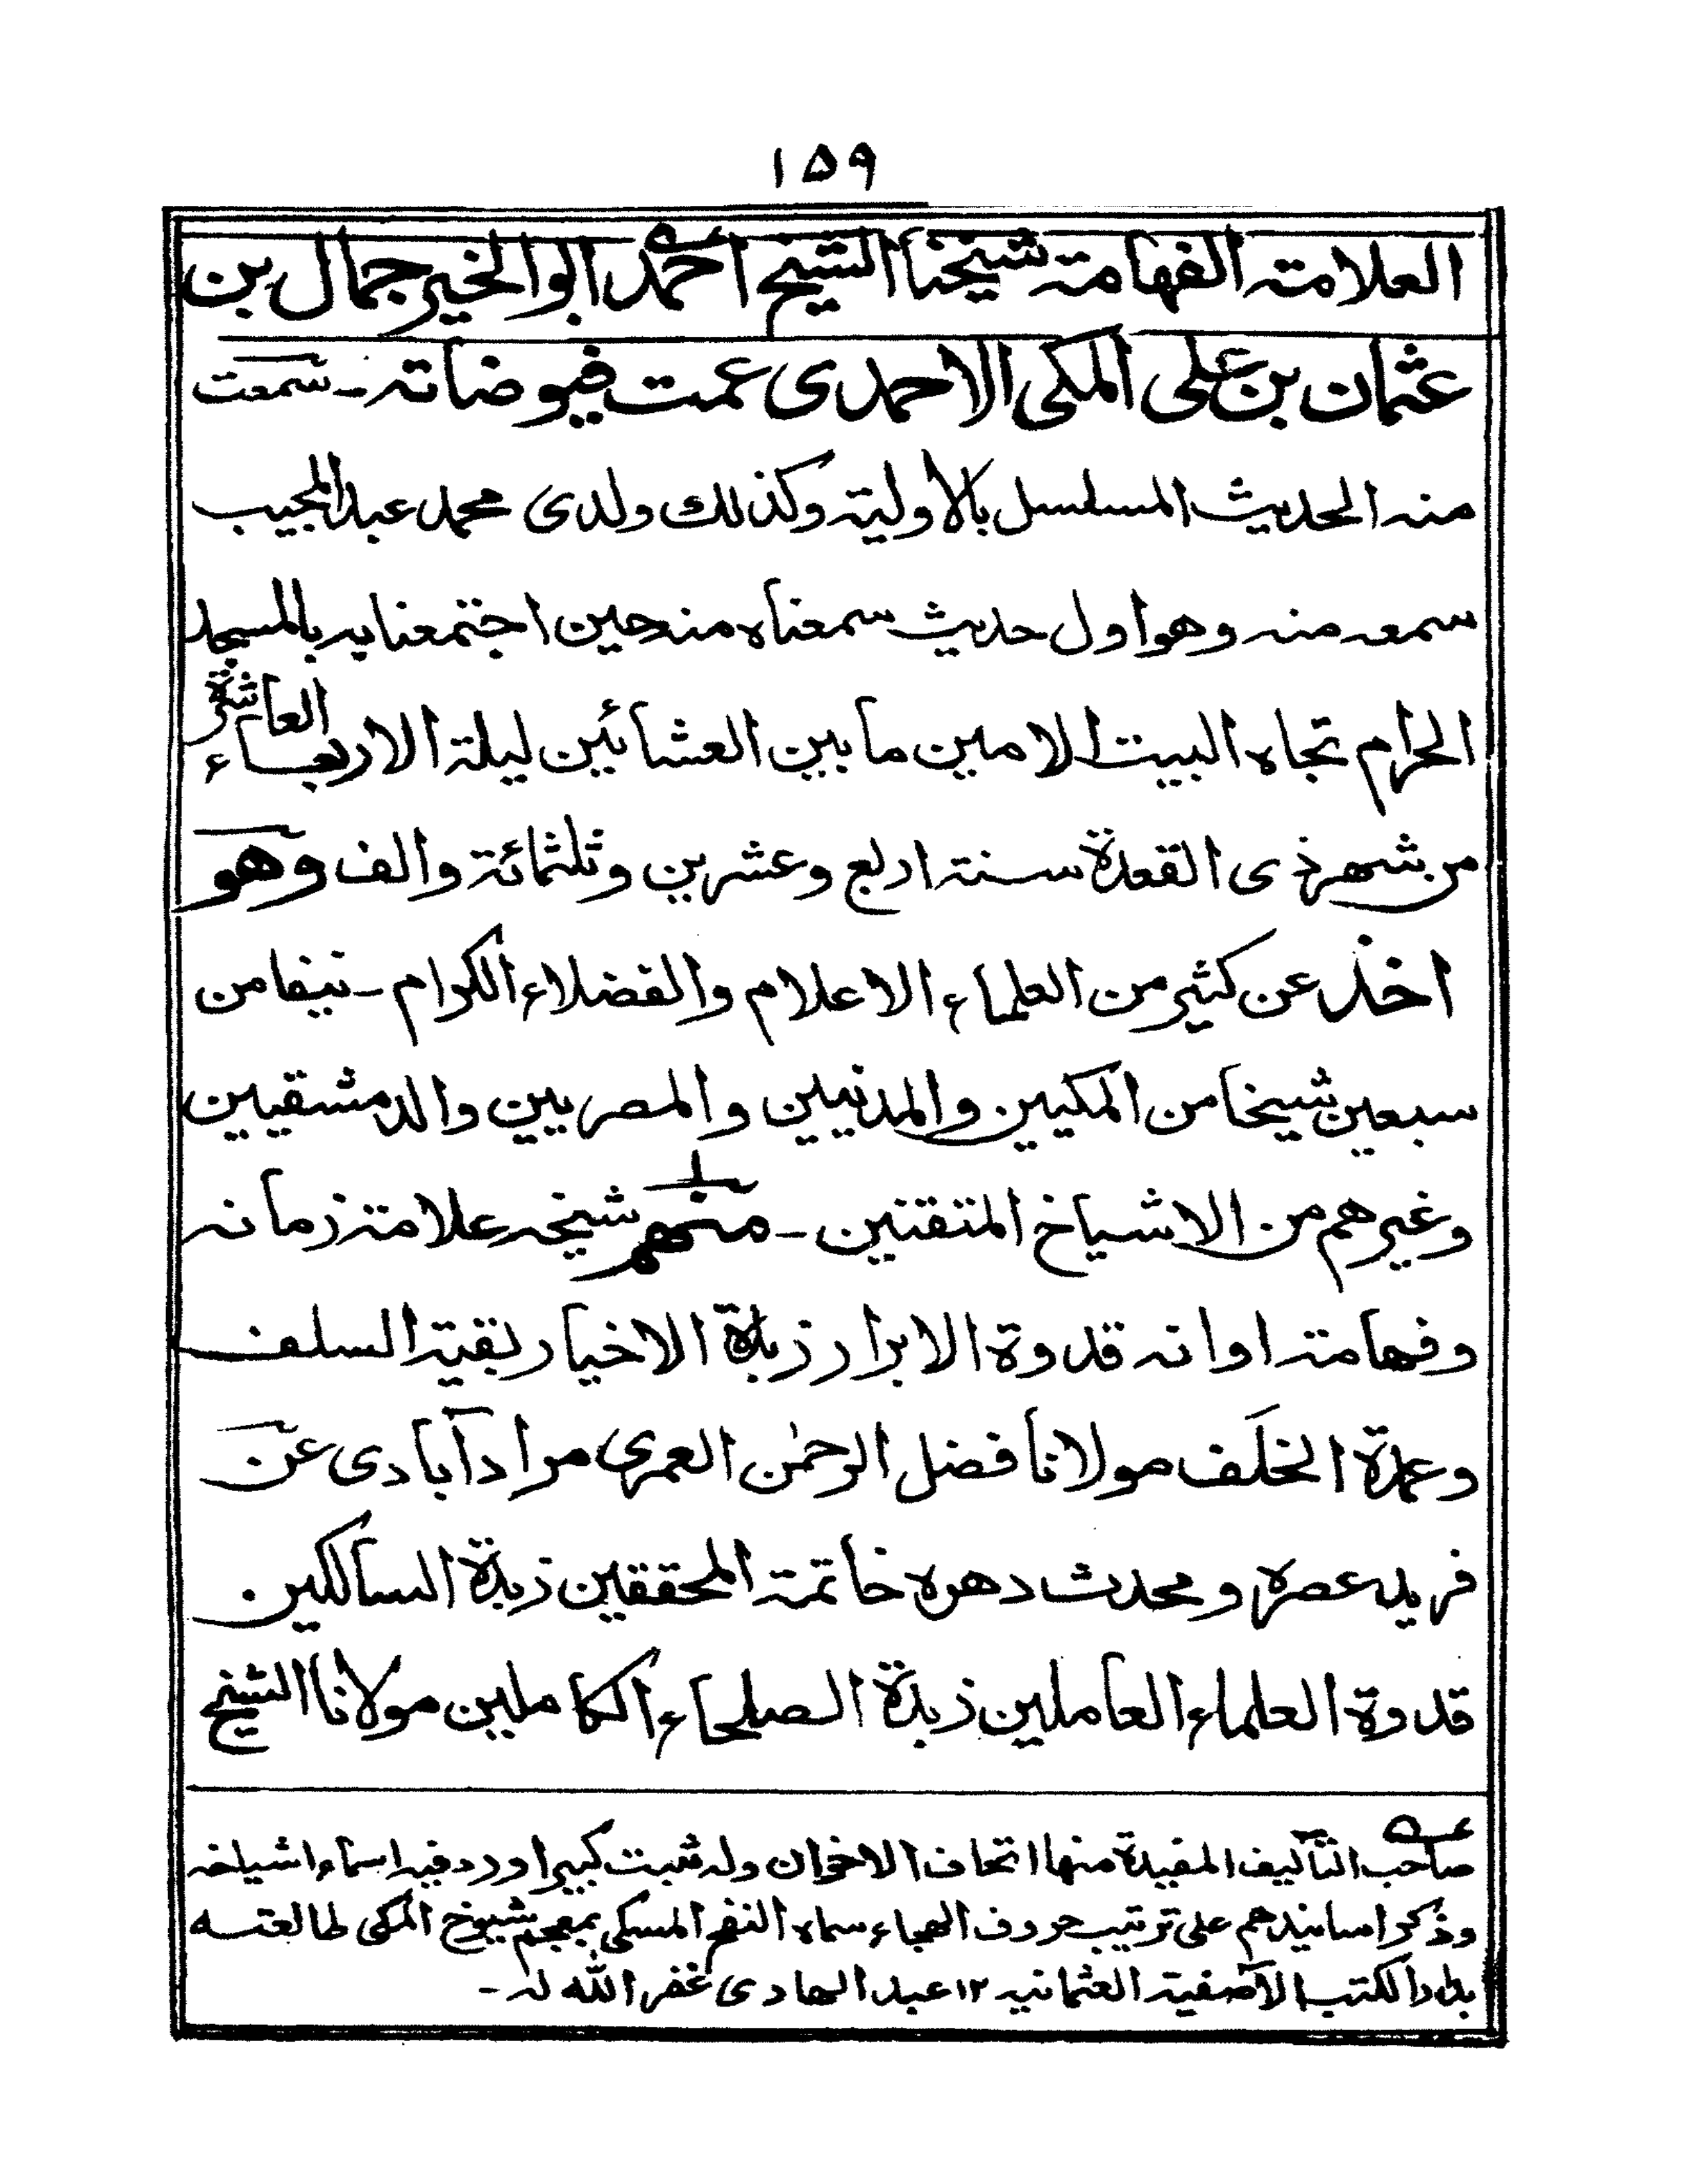 ١٥٩
العلامة الفهامة شيخنا الشيخ احمد ابوالخير جمال بن
عثمان بن على المكى الاحمدى عمت فيوضاته ـ سمعت
منه الحديث المسلسل بالاولية وكذلك ولدى محمد عبدالمجيب
سمعه منه وهو اول حديث سمعناه منه حين اجتمعنا به بالمسجد
الحرام تجاه البيت الامين ما بين العشائين ليلة الاربعاء العاشرة
من شهر ذى القعدة سنة اربع وعشرين وثلثمائة والف وهو
اخذ عن كثير من العلماء الاعلام والفضلاء الكرام ـ نيفا من
سبعين شيخا من المكيين والمدنيين والمصريين والدمشقيين
وغيرهم من الاشياخ المتقنين ـ منهم شيخه علامة زمانه
وفهامة اوانه قدوة الابرار زبدة الاخيار بقية السلف
وعمدة الخلَف مولانا فضل الرحمٰن العمرى مرادآبادى عن
فريد عصره ومحدث دهره خاتمة المحققين زبدة السالكين
قدوة العلماء العاملين زبدة الصلحاء الكاملين مولانا الشيخ
صاحب التآليف المفيدة منها اتحاف الاخوان وله ثبت كبير اورد فيه اسماء اشياخه
وذكر اسانيدهم على ترتيب حروف الهجاء سماه النفح المسكى بمعجم شيوخ المكى طالعته
بدار الكتب الآصفية العثمانيه ١٢ عبد الهادى غفر الله له ـ